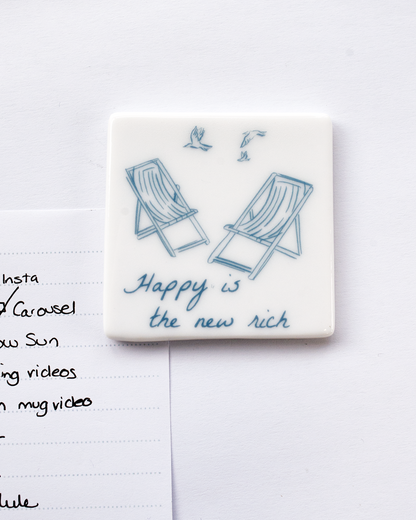 Happy is
the new rich
Insta
Carousel
Sun
videos
mug video